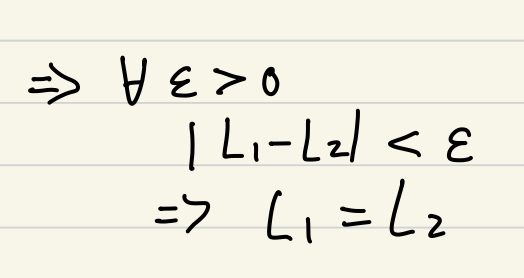 ⇒ ∀ ε > 0
| L₁ - L₂ | < ε
⇒ L₁ = L₂